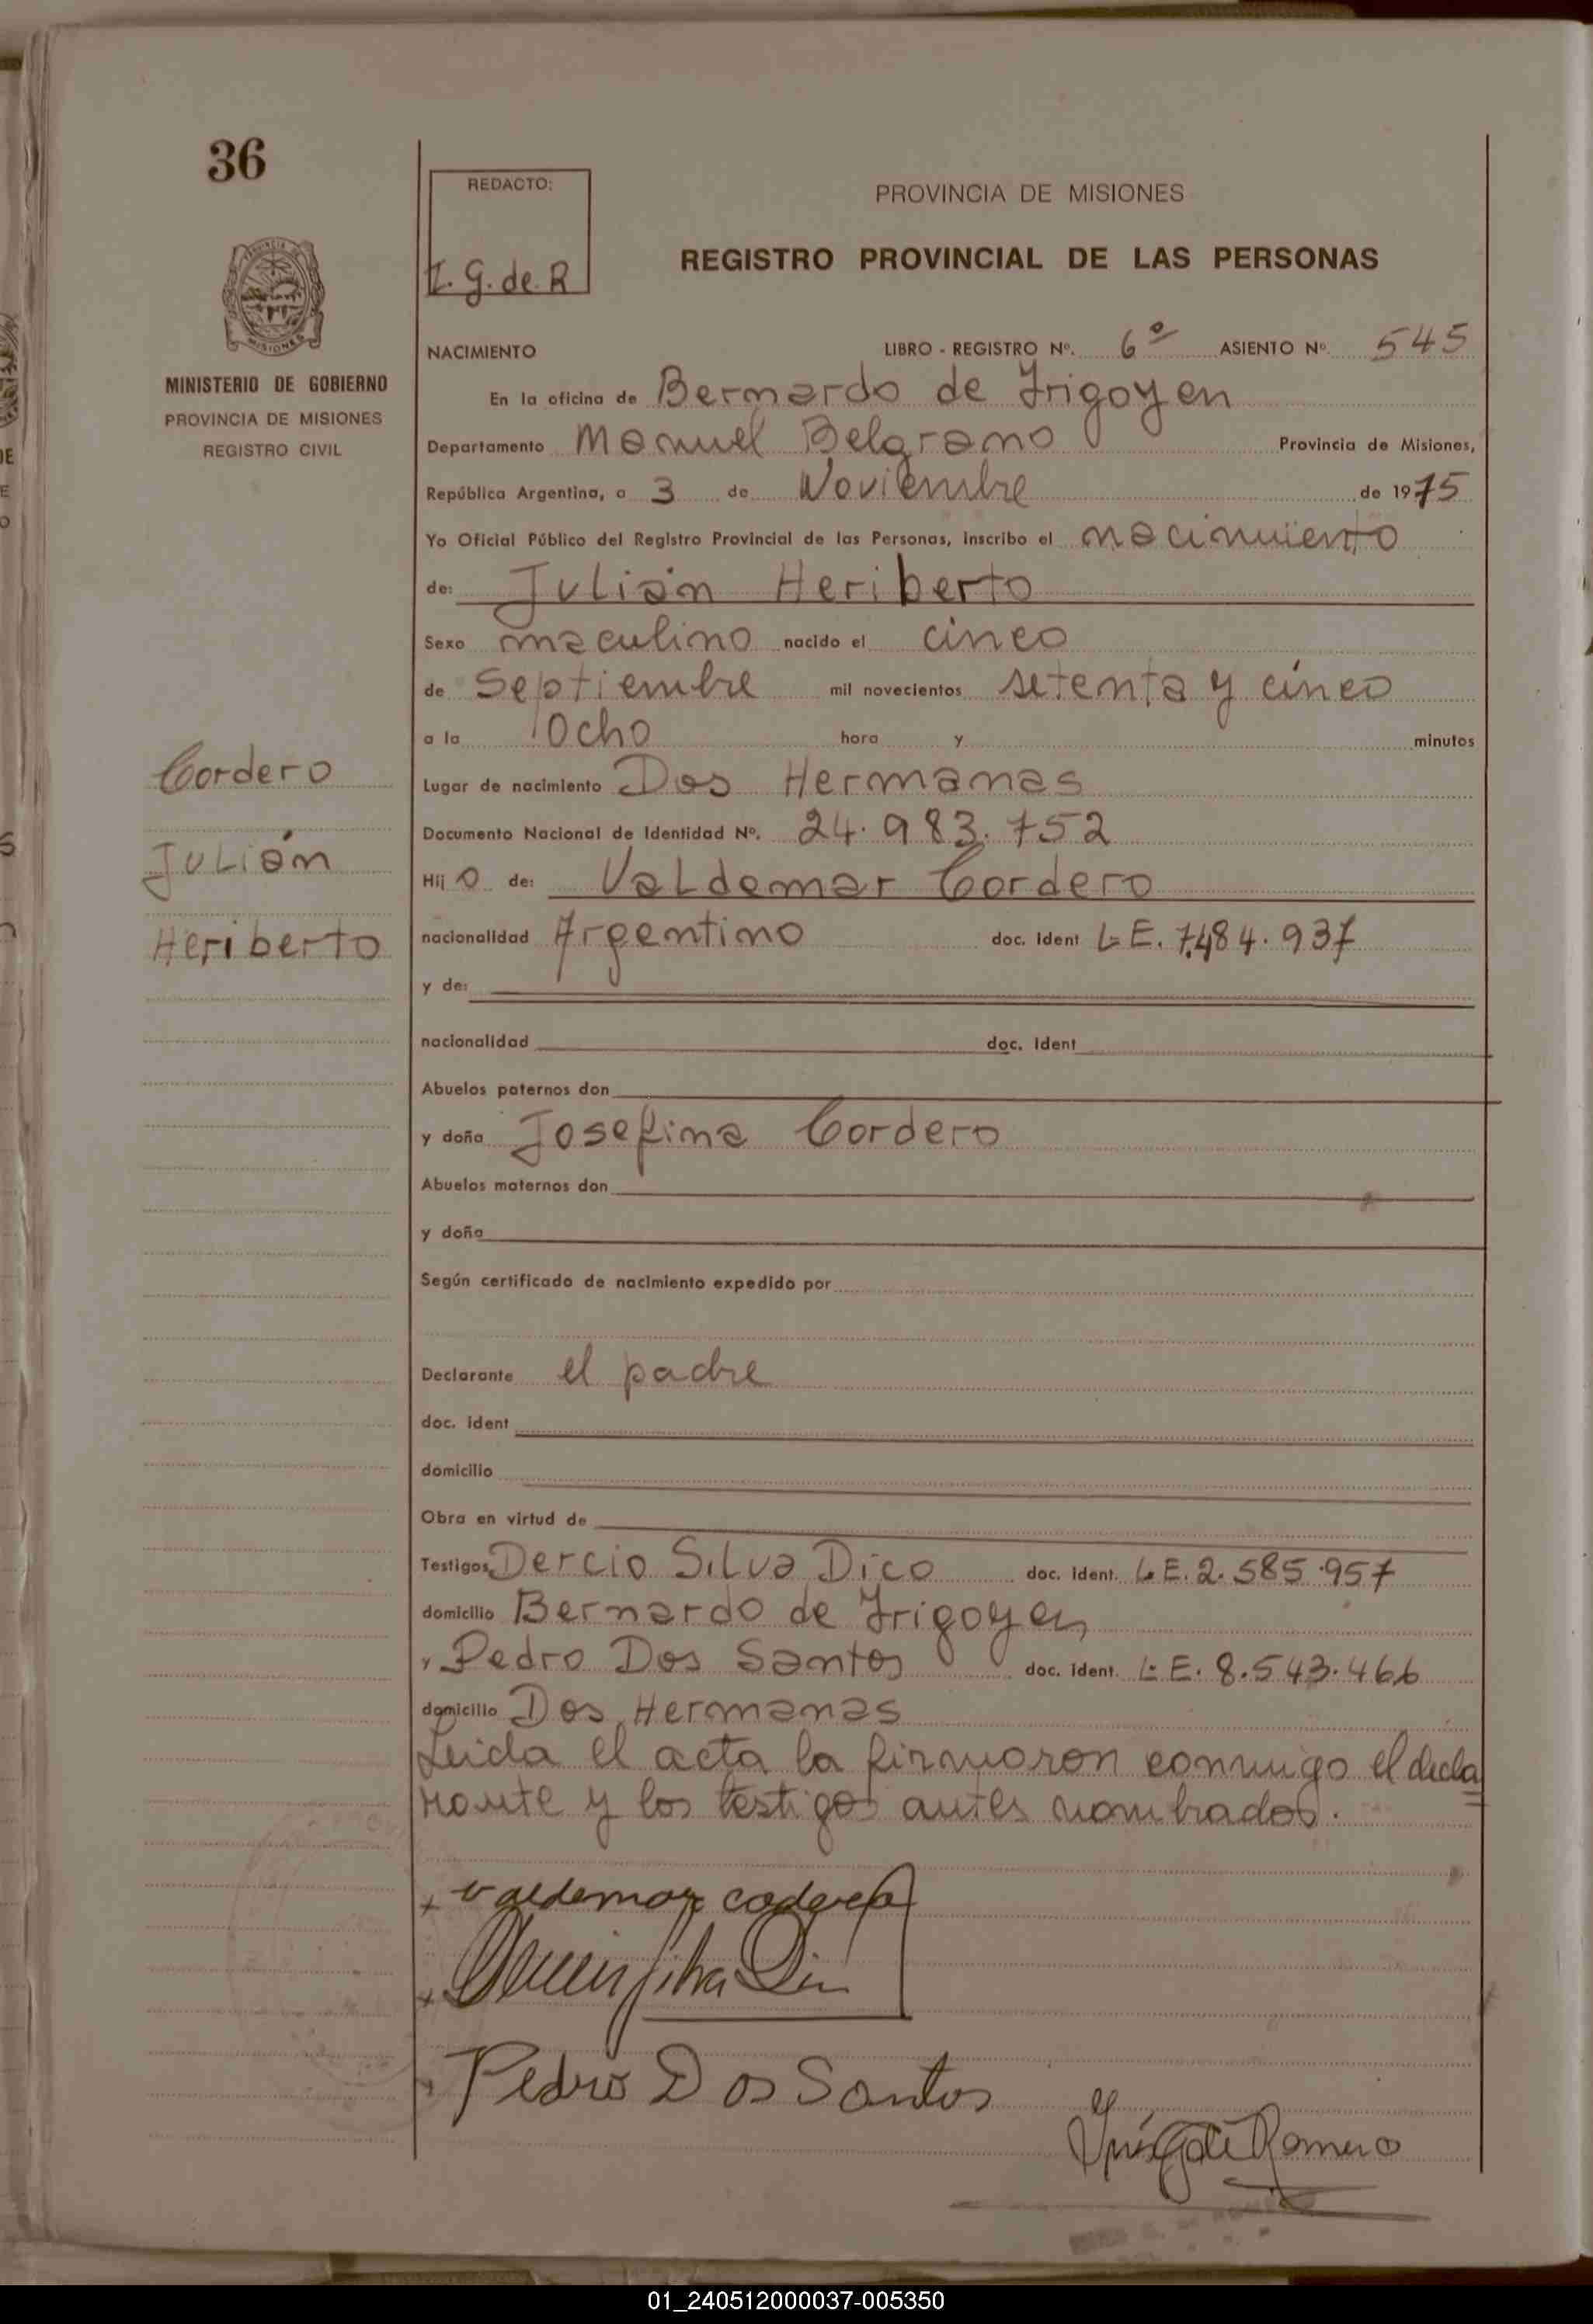 36
REDACTO:
I. G. de R
PROVINCIA DE MISIONES
REGISTRO PROVINCIAL DE LAS PERSONAS
MISIONES
MINISTERIO DE GOBIERNO
PROVINCIA DE MISIONES
REGISTRO CIVIL
NACIMIENTO LIBRO - REGISTRO Nº. 6º ASIENTO Nº 545
En la oficina de Bernardo de Irigoyen
Departamento Manuel Belgrano Provincia de Misiones,
República Argentina, a 3 de Noviembre de 1975
Yo Oficial Público del Registro Provincial de las Personas, inscribo el nacimiento
de: Julián Heriberto
Sexo maculino nacido el cinco
de Septiembre mil novecientos setenta y cinco
a la Ocho hora y minutos
Cordero
Julián
Heriberto
Lugar de nacimiento Dos Hermanas
Documento Nacional de Identidad Nº. 24.983.752
Hij o de: Valdemar Cordero
nacionalidad Argentino doc. Ident L.E. 7.484.937
y de:
nacionalidad doc. Ident
Abuelos paternos don
y doña Josefina Cordero
Abuelos maternos don
y doña
Según certificado de nacimiento expedido por
Declarante el padre
doc. ident
domicilio
Obra en virtud de
Testigos Dercio Silva Dico doc. ident. L.E. 2.585.957
domicilio Bernardo de Irigoyen
y Pedro Dos Santos doc. ident. L.E. 8.543.466
domicilio Dos Hermanas
Leida el acta la firmaron conmigo el decla
rante y los testigos antes nombrados.
valdemar codero
Silva
Pedro Dos Santos
Romero
01_240512000037-005350